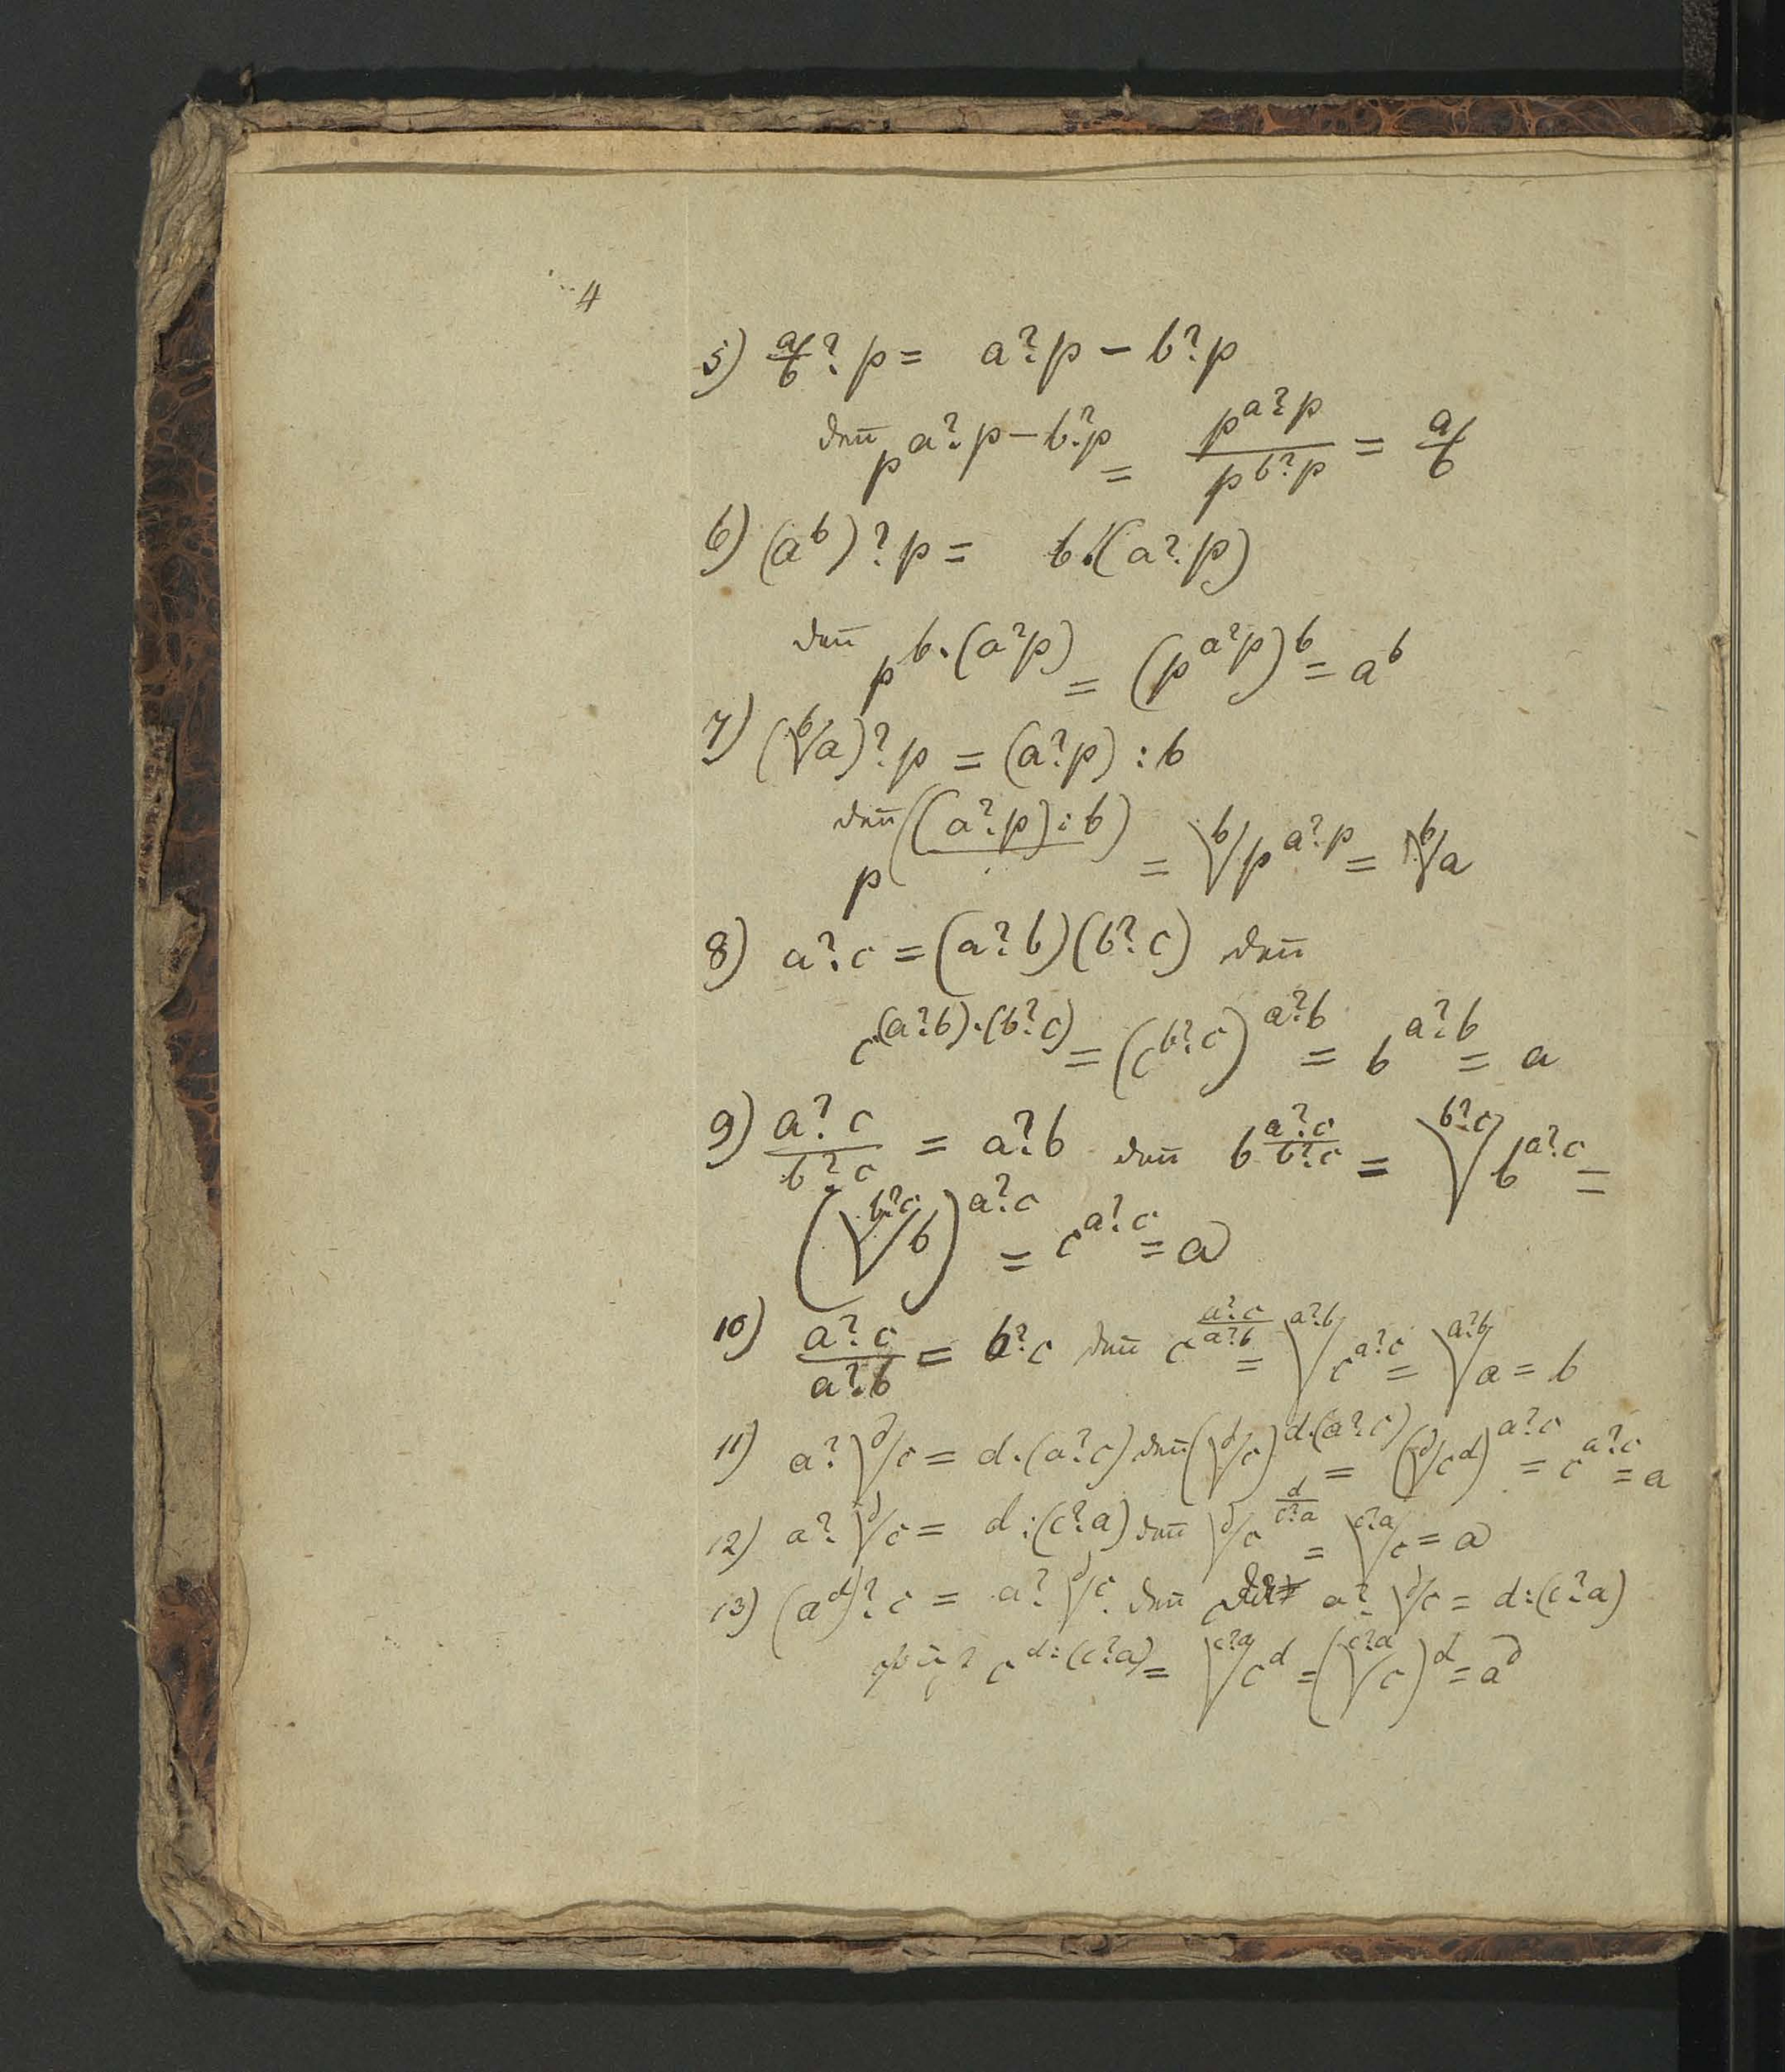 4
5) a/b ? p = a ? p − b ? p
den̄ p^(a?p − b?p) = p^(a?p) / p^(b?p) = a/b
6) (a^b) ? p = b.(a ? p)
den̄ p^(b.(a?p)) = (p^(a?p))^b = a^b
7) (ᵇ√a) ? p = (a ? p) : b
den̄ p^((a?p):b) = ᵇ√p^(a?p) = ᵇ√a
8) a ? c = (a ? b)(b ? c) den̄
c^((a?b).(b?c)) = (c^(b?c))^(a?b) = b^(a?b) = a
9) (a ? c)/(b ? c) = a ? b den̄ b^((a?c)/(b?c)) = ᵇ?ᶜ√b^(a?c) =
(ᵇ?ᶜ√b)^(a?c) = c^(a?c) = a
10) (a ? c)/(a ? b) = b ? c den̄ c^((a?c)/(a?b)) = ᵃ?ᵇ√c^(a?c) = ᵃ?ᵇ√a = b
11) a ? ᵈ√c = d.(a ? c) den̄ (ᵈ√c)^(d.(a?c)) = (ᵈ√c^d)^(a?c) = c^(a?c) = a
12) a ? ᵈ√c = d : (c ? a) den̄ ᵈ√c^(d/(c?a)) = ᶜ?ᵃ√c = a
13) (a^d) ? c = a ? ᵈ√c. den̄ a ? ᵈ√c = d : (c ? a)
c^(d:(c?a)) = ᶜ?ᵃ√c^d = (ᶜ?ᵃ√c)^d = a^d